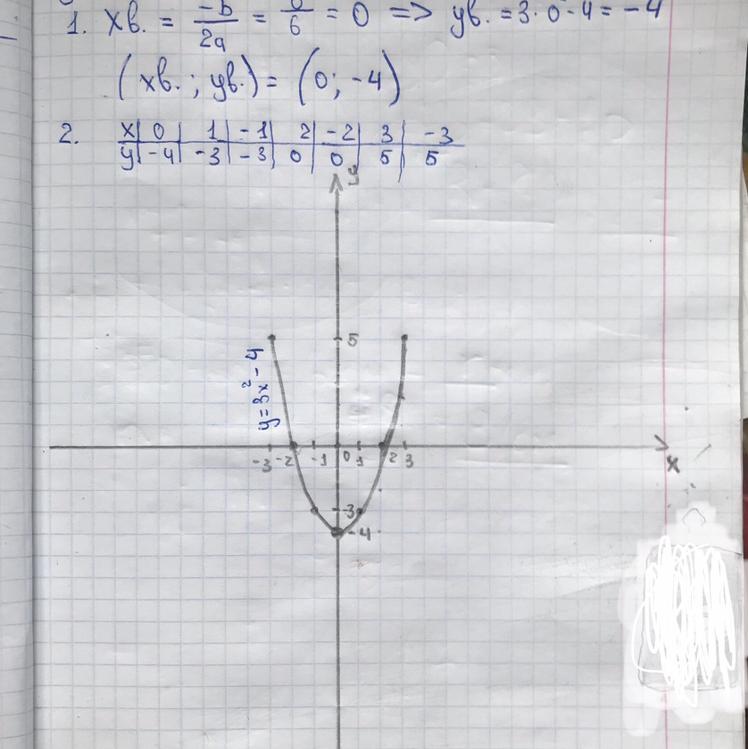 1. xв. = -b/2a = 0/6 = 0 => yв. = 3·0-4 = -4
(xв.; yв.) = (0; -4)
2. x | 0 | 1 | -1 | 2 | -2 | 3 | -3
y | -4 | -3 | -3 | 0 | 0 | 5 | 5
y
5
y=3x²-4
-3 -2 -1 0 1 2 3
x
-3
-4